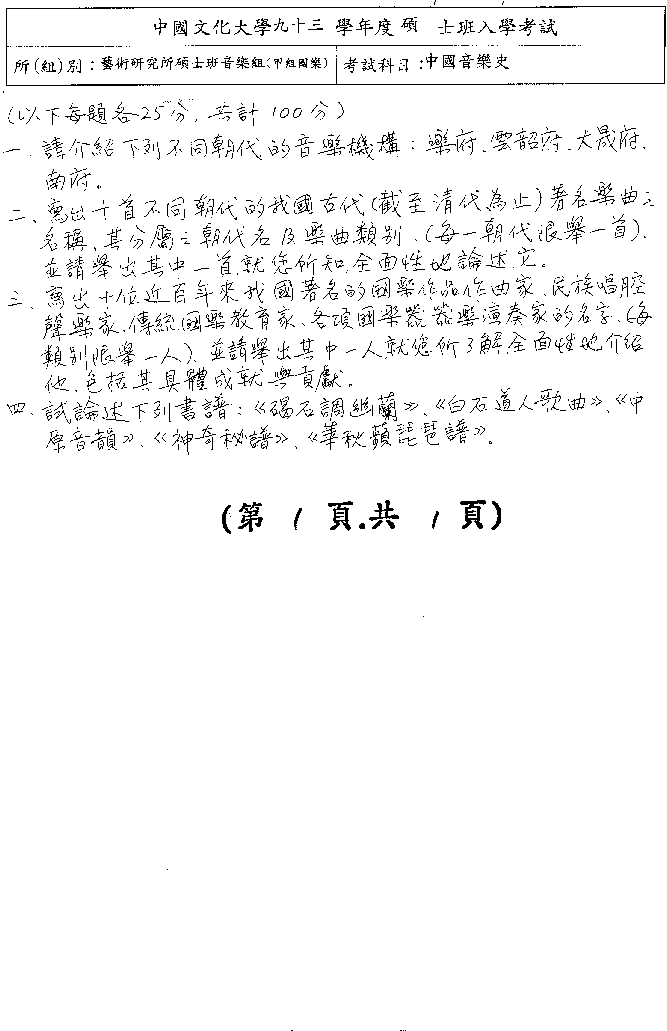 中國文化大學九十三 學年度碩 士班入學考試
所(組)別：藝術研究所碩士班音樂組(甲組國樂) 考試科目：中國音樂史
(以下每題各25分，共計100分)
一、請介紹下列不同朝代的音樂機構：樂府、雲韶府、大晟府、
南府。
二、寫出十首不同朝代的我國古代(截至清代為止)著名樂曲之
名稱、其分屬之朝代名及樂曲類別、(每一朝代限舉一首)，
並請舉出其中一首就您所知，全面性地論述它。
三、寫出十位近百年來我國著名的國樂作品作曲家、民族唱腔
聲樂家、傳統國樂教育家、各項國樂器器樂演奏家的名字、(每
類別限舉一人)，並請舉出其中一人就您所了解，全面性地介紹
他，包括其具體成就與貢獻。
四、試論述下列書譜：《碣石調幽蘭》、《白石道人歌曲》、《中
原音韻》、《神奇秘譜》、《華秋蘋琵琶譜》。
(第 1 頁.共 1 頁)